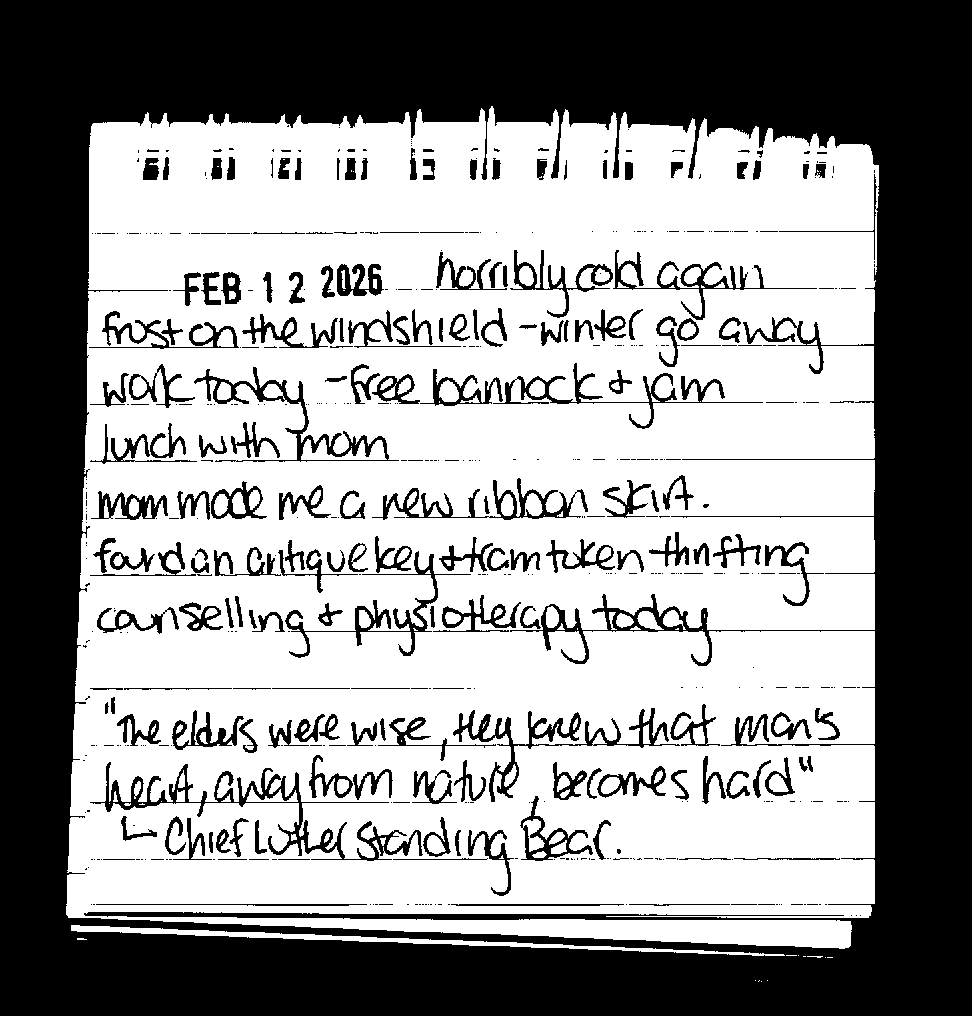 FEB 12 2026 horribly cold again
frost on the windshield - winter go away
work today - free bannock & jam
lunch with mom
mom made me a new ribbon skirt.
found an antique key & tram token thrifting
counselling & physiotherapy today
"The elders were wise, they knew that man's
heart, away from nature, becomes hard"
Chief Luther Standing Bear.